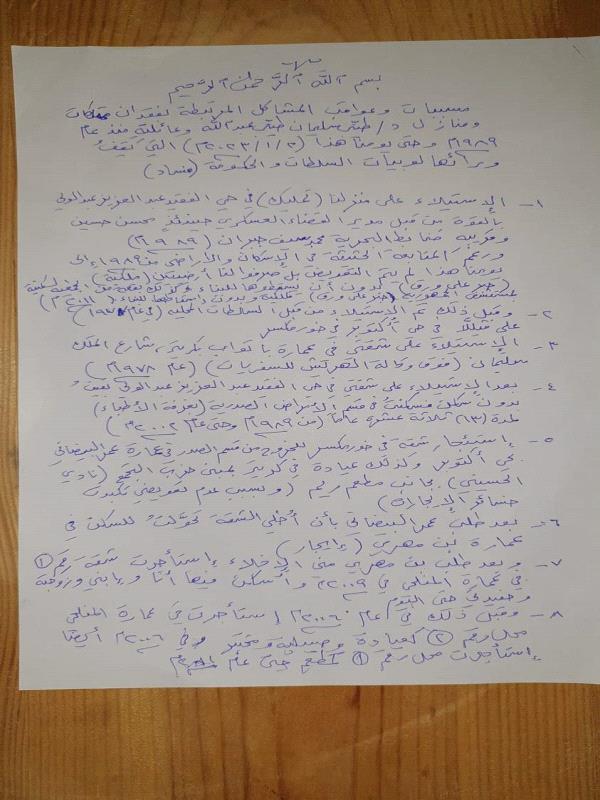 بسم الله الرحمن الرحيم
مسببات وعواقب المشاكل المرتبطة لفقدان ممتلكات
ومنازل د/ سليمان عبدالله وعائلته منذ عام
١٩٨٩م وحتى يومنا هذا (٢٠٢٣/١/٢م) التي يقف
ورائها لوبيات السلطات والحكومة (فساد)
١- الإستيلاء على منزلنا (تمليك) في حي الفقيد عبدالعزيز عبدالولي
بالقوة من قبل مدير القضاء العسكري حينئذٍ محسن حسين
وقريبه ضابط البحرية محمد سيف جبران (١٩٨٩م)
ورغم المتابعة الحثيثة في الإسكان والأراضي من ١٩٨٩م إلى
يومنا هذا لم يتم التعويض بل صرفوا لنا أرضيتين (ملكية)
(حبر على ورق) بدون أن يسقطوها للبناء وكذلك بقعة من الجمعية السكنية
لمستشفى الجمهورية (حبر على ورق) ملكية وبدون إسقاطها للبناء (٢٠١١م)
٢- وقبل ذلك تم الإستيلاء من قبل السلطات المحلية (في عام
على فيللا في حي أكتوبر في خورمكسر
٣- الإستيلاء على شقتي في عمارة باثواب بكريتر، شارع الملك
سليمان (فوق وكالة للسفريات) (عام ١٩٧٨م)
٤- بعد الإستيلاء على شقتي في حي الفقيد عبدالعزيز عبدالولي بقيت
بدون سكن فسكنت في قسم الأمراض الصدرية (بغرفة الأطباء)
لمدة (١٣) ثلاثة عشر عاماً (من ١٩٨٩م وحتى عام ٢٠٠٢م)
٥- إستئجار شقة في خورمكسر للخروج من قسم الصدر في عمارة عمر البيضاني
بحي أكتوبر وكذلك عيادة في كريتر بمبنى حزب التجمع (نادي
الحسيني) بجانب مطعم ريم (وبسبب عدم تعويضي تكبدت
خسائر الإيجارات)
٦- بعد طلب عمر البيضاني بأن أُخلي الشقة تحولت للسكن في
عمارة بن مهري (إيجار)
٧- وبعد طلب بن مهري مني الإخلاء إستأجرت شقة رقم ①
في عمارة المفلحي في ٢٠٠٩م وأسكن فيها أنا وإبني وزوجته
وحفيدي حتى اليوم
٨- وقبل ذلك في عام ٢٠٠٦م إستأجرت في عمارة المفلحي
محل رقم ② كعيادة وصيدلية ومختبر وفي ٢٠٠٦م أيضاً
إستأجرت محل رقم ① كمطعم حتى عام